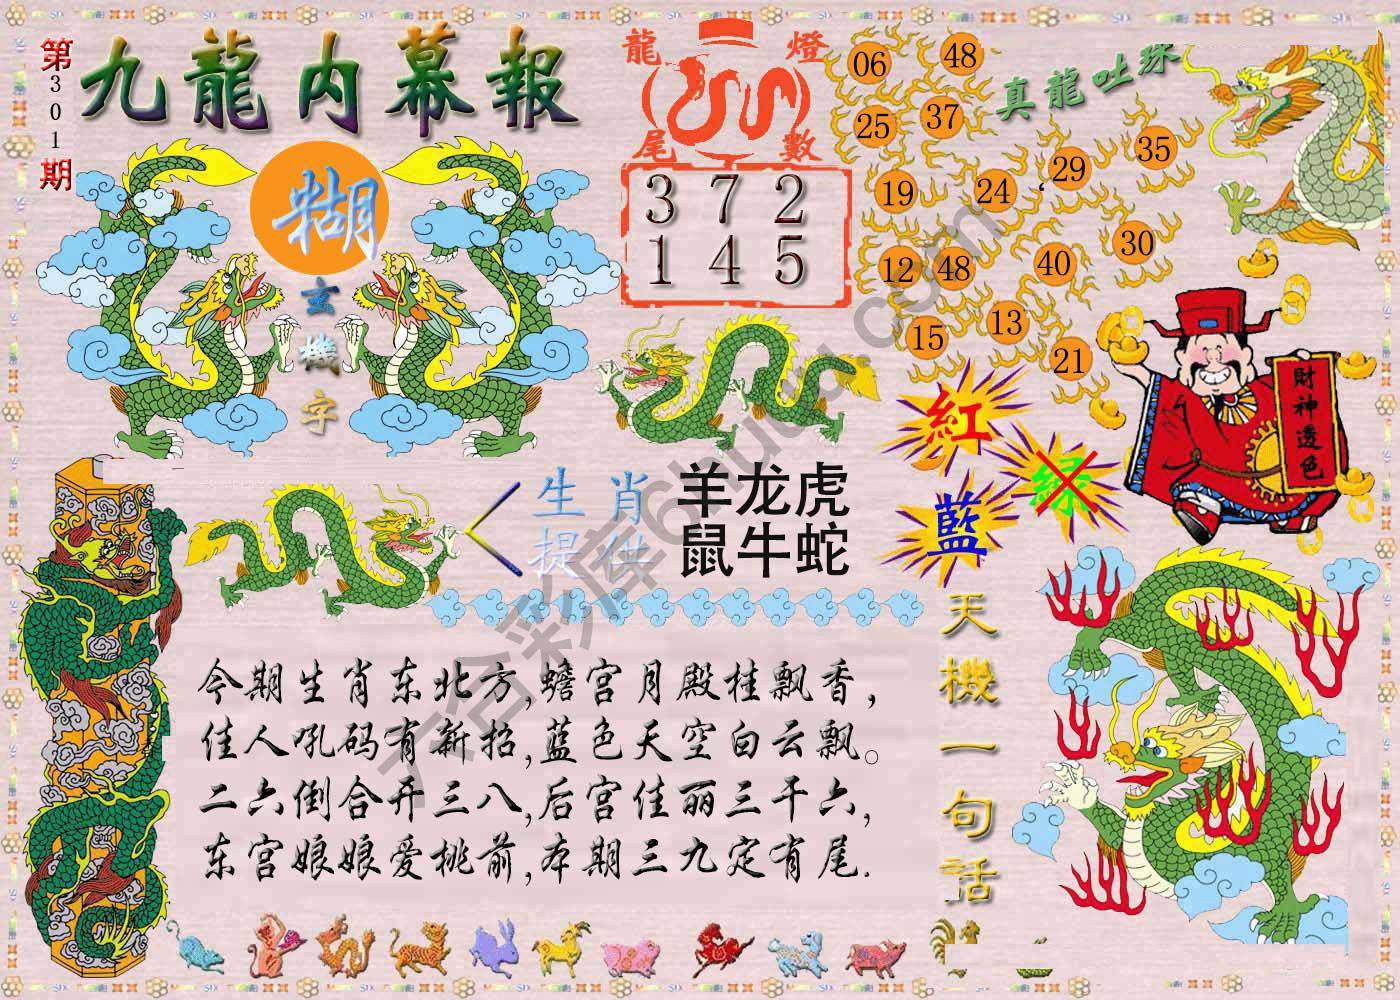 第301期
九龍內幕報
糊
玄機字
龍燈
尾數
3 7 2
1 4 5
06 48
25 37
19 24 29 35
12 48 40 30
15 13 21
真龍吐珠
財神透色
紅
綠
藍
生肖 羊龙虎
提供 鼠牛蛇
今期生肖东北方,蟾宫月殿桂飘香,
佳人吼码有新招,蓝色天空白云飘。
二六倒合开三八,后宫佳丽三千六,
东宫娘娘爱桃前,本期三九定有尾.
天機一句話
六合彩库6huuu.com